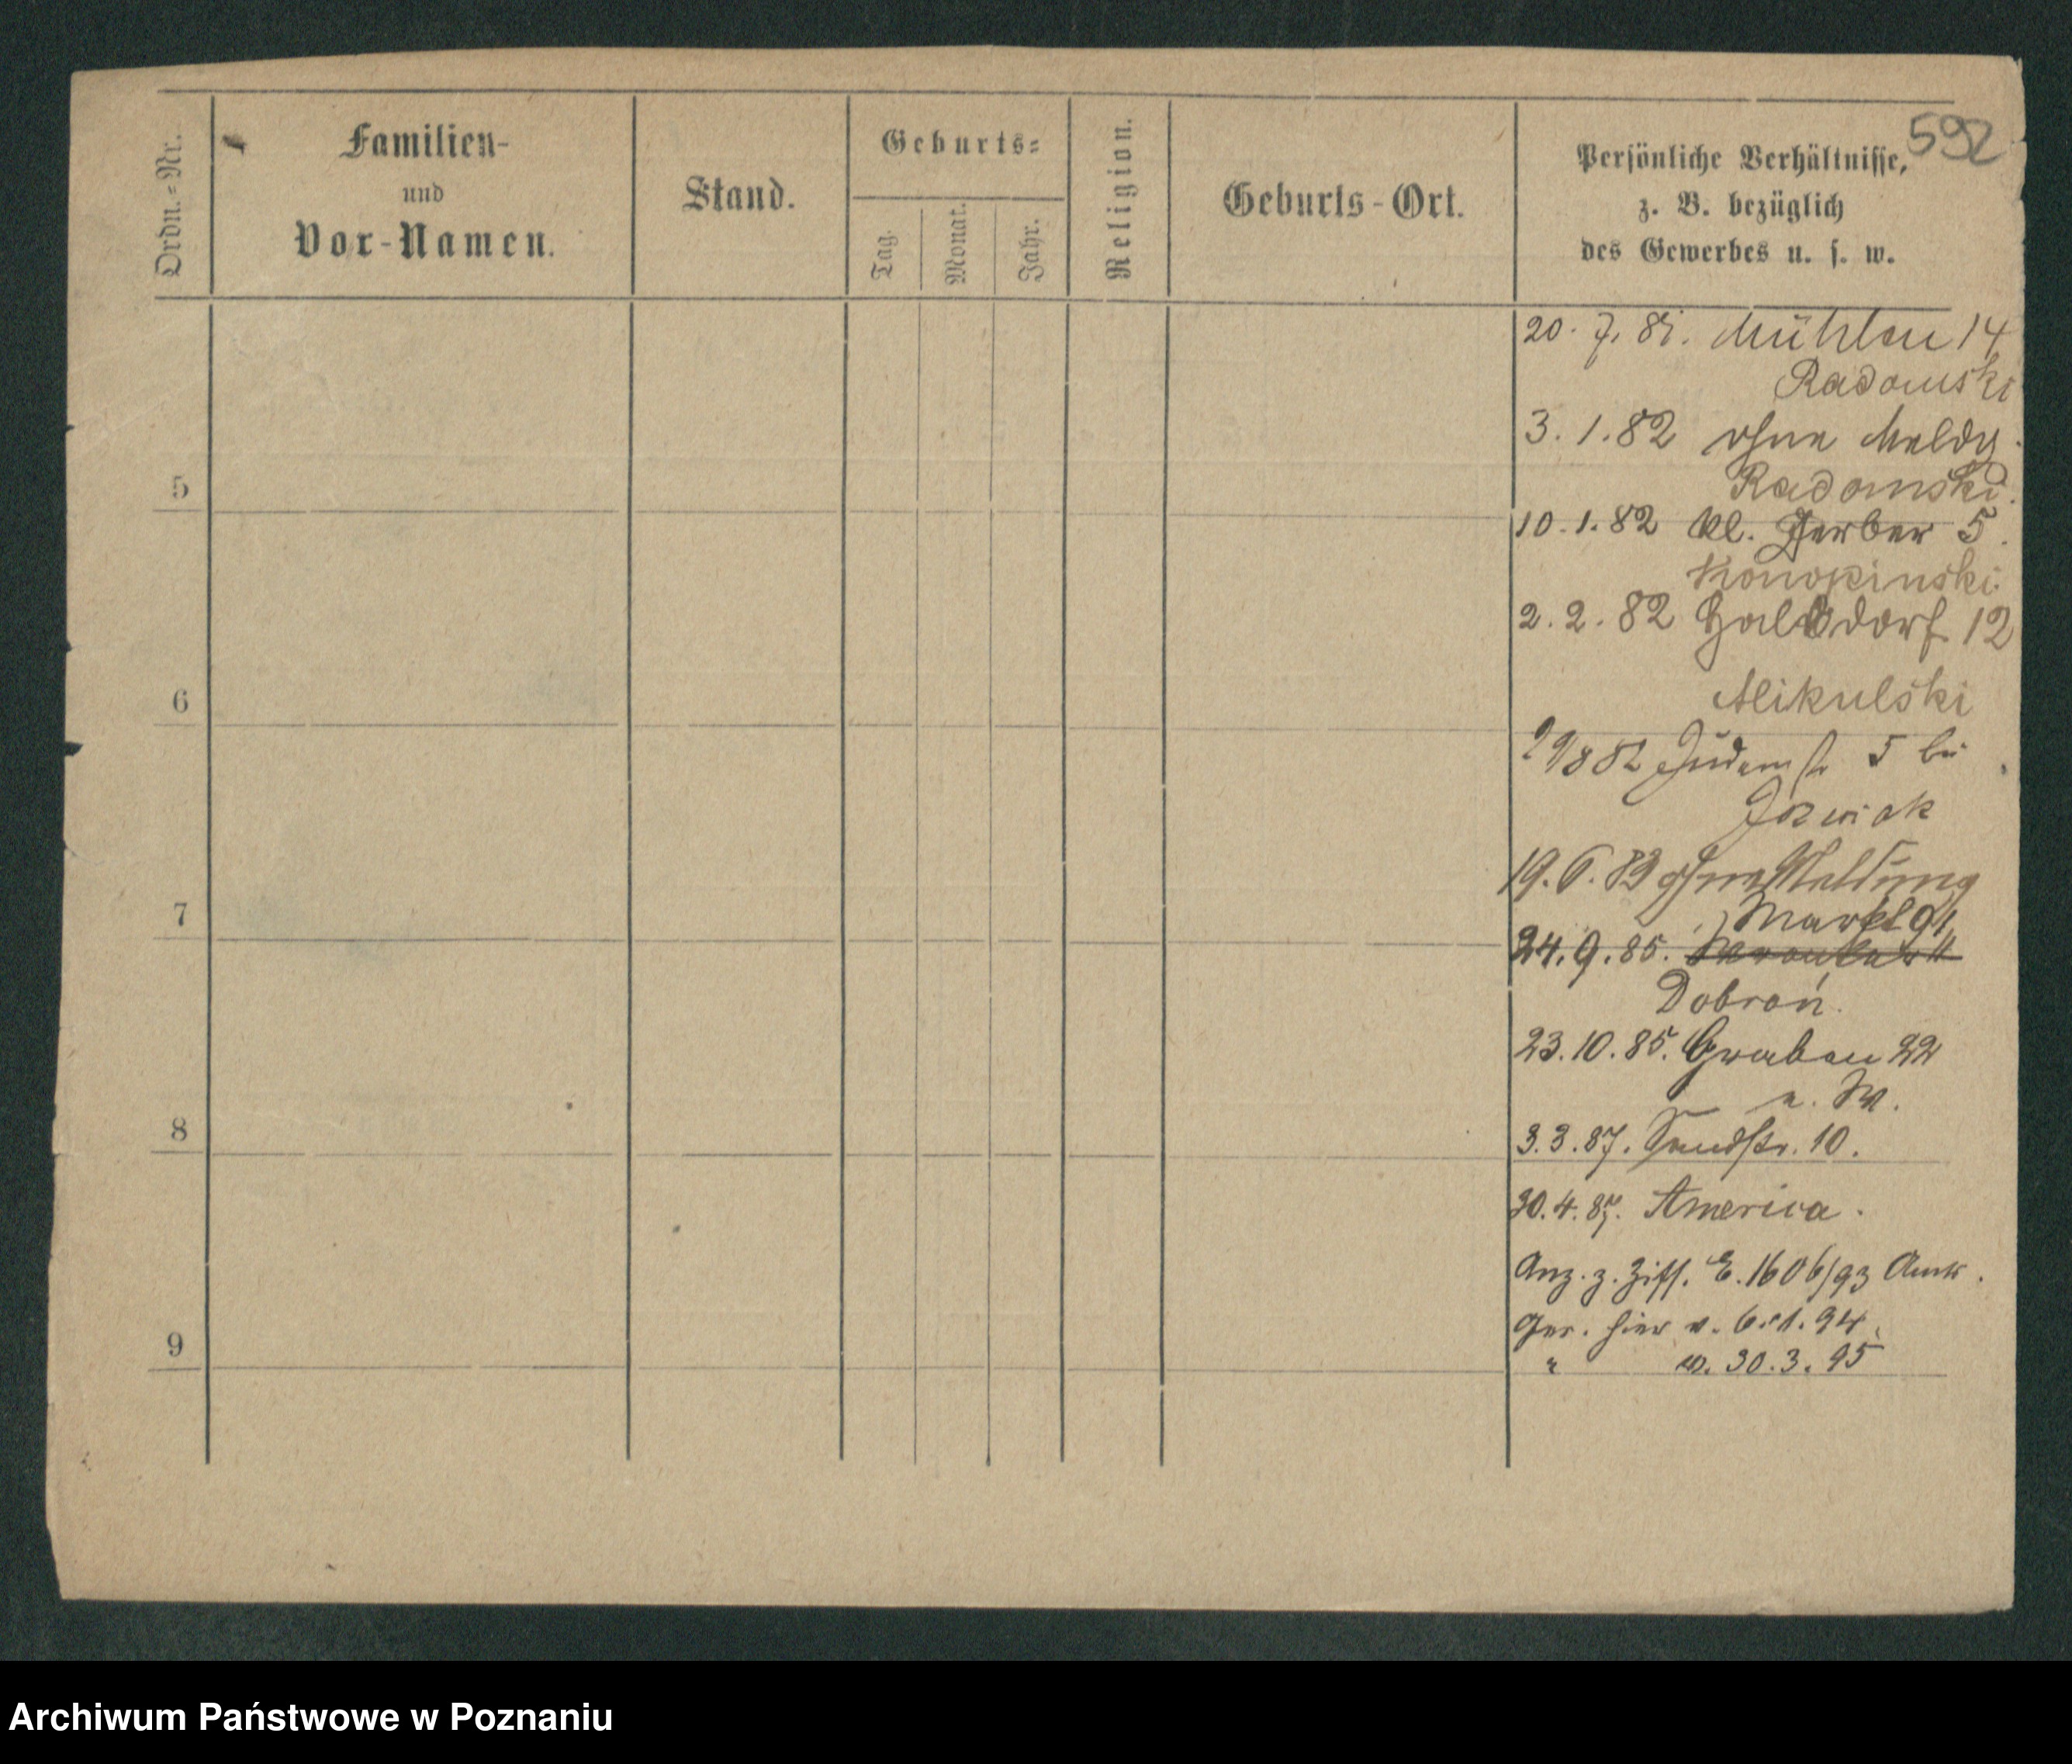 592
Ordn.=Nr.
Familien-
und
Vor-Namen.
Stand.
Geburts=
Tag.
Monat.
Jahr.
Religion.
Geburts-Ort.
Persönliche Verhältnisse,
z. B. bezüglich
des Gewerbes u. s. w.
20. 7. 81. Mühlen 14
Radomski
3. 1. 82 ohne Meldg.
Radomski.
5
10. 1. 82 kl. Gerber 5.
Konopinski.
2. 2. 82 Halbdorf 12
Mikulski
6
29/8 82 Judenstr 5 bei
Jozwiak
19. 6. 83 ohne Meldung
Markt 91
7
24. 9. 85. Wronker
Dobroń.
23. 10. 85. Graben 22
a. W.
8
3. 3. 87. Sandstr. 10.
30. 4. 87. America.
Anz. z. Ziff. E. 1606/93
Ger. hier v. 94.
9
" v. 30. 3. 95
Archiwum Państwowe w Poznaniu